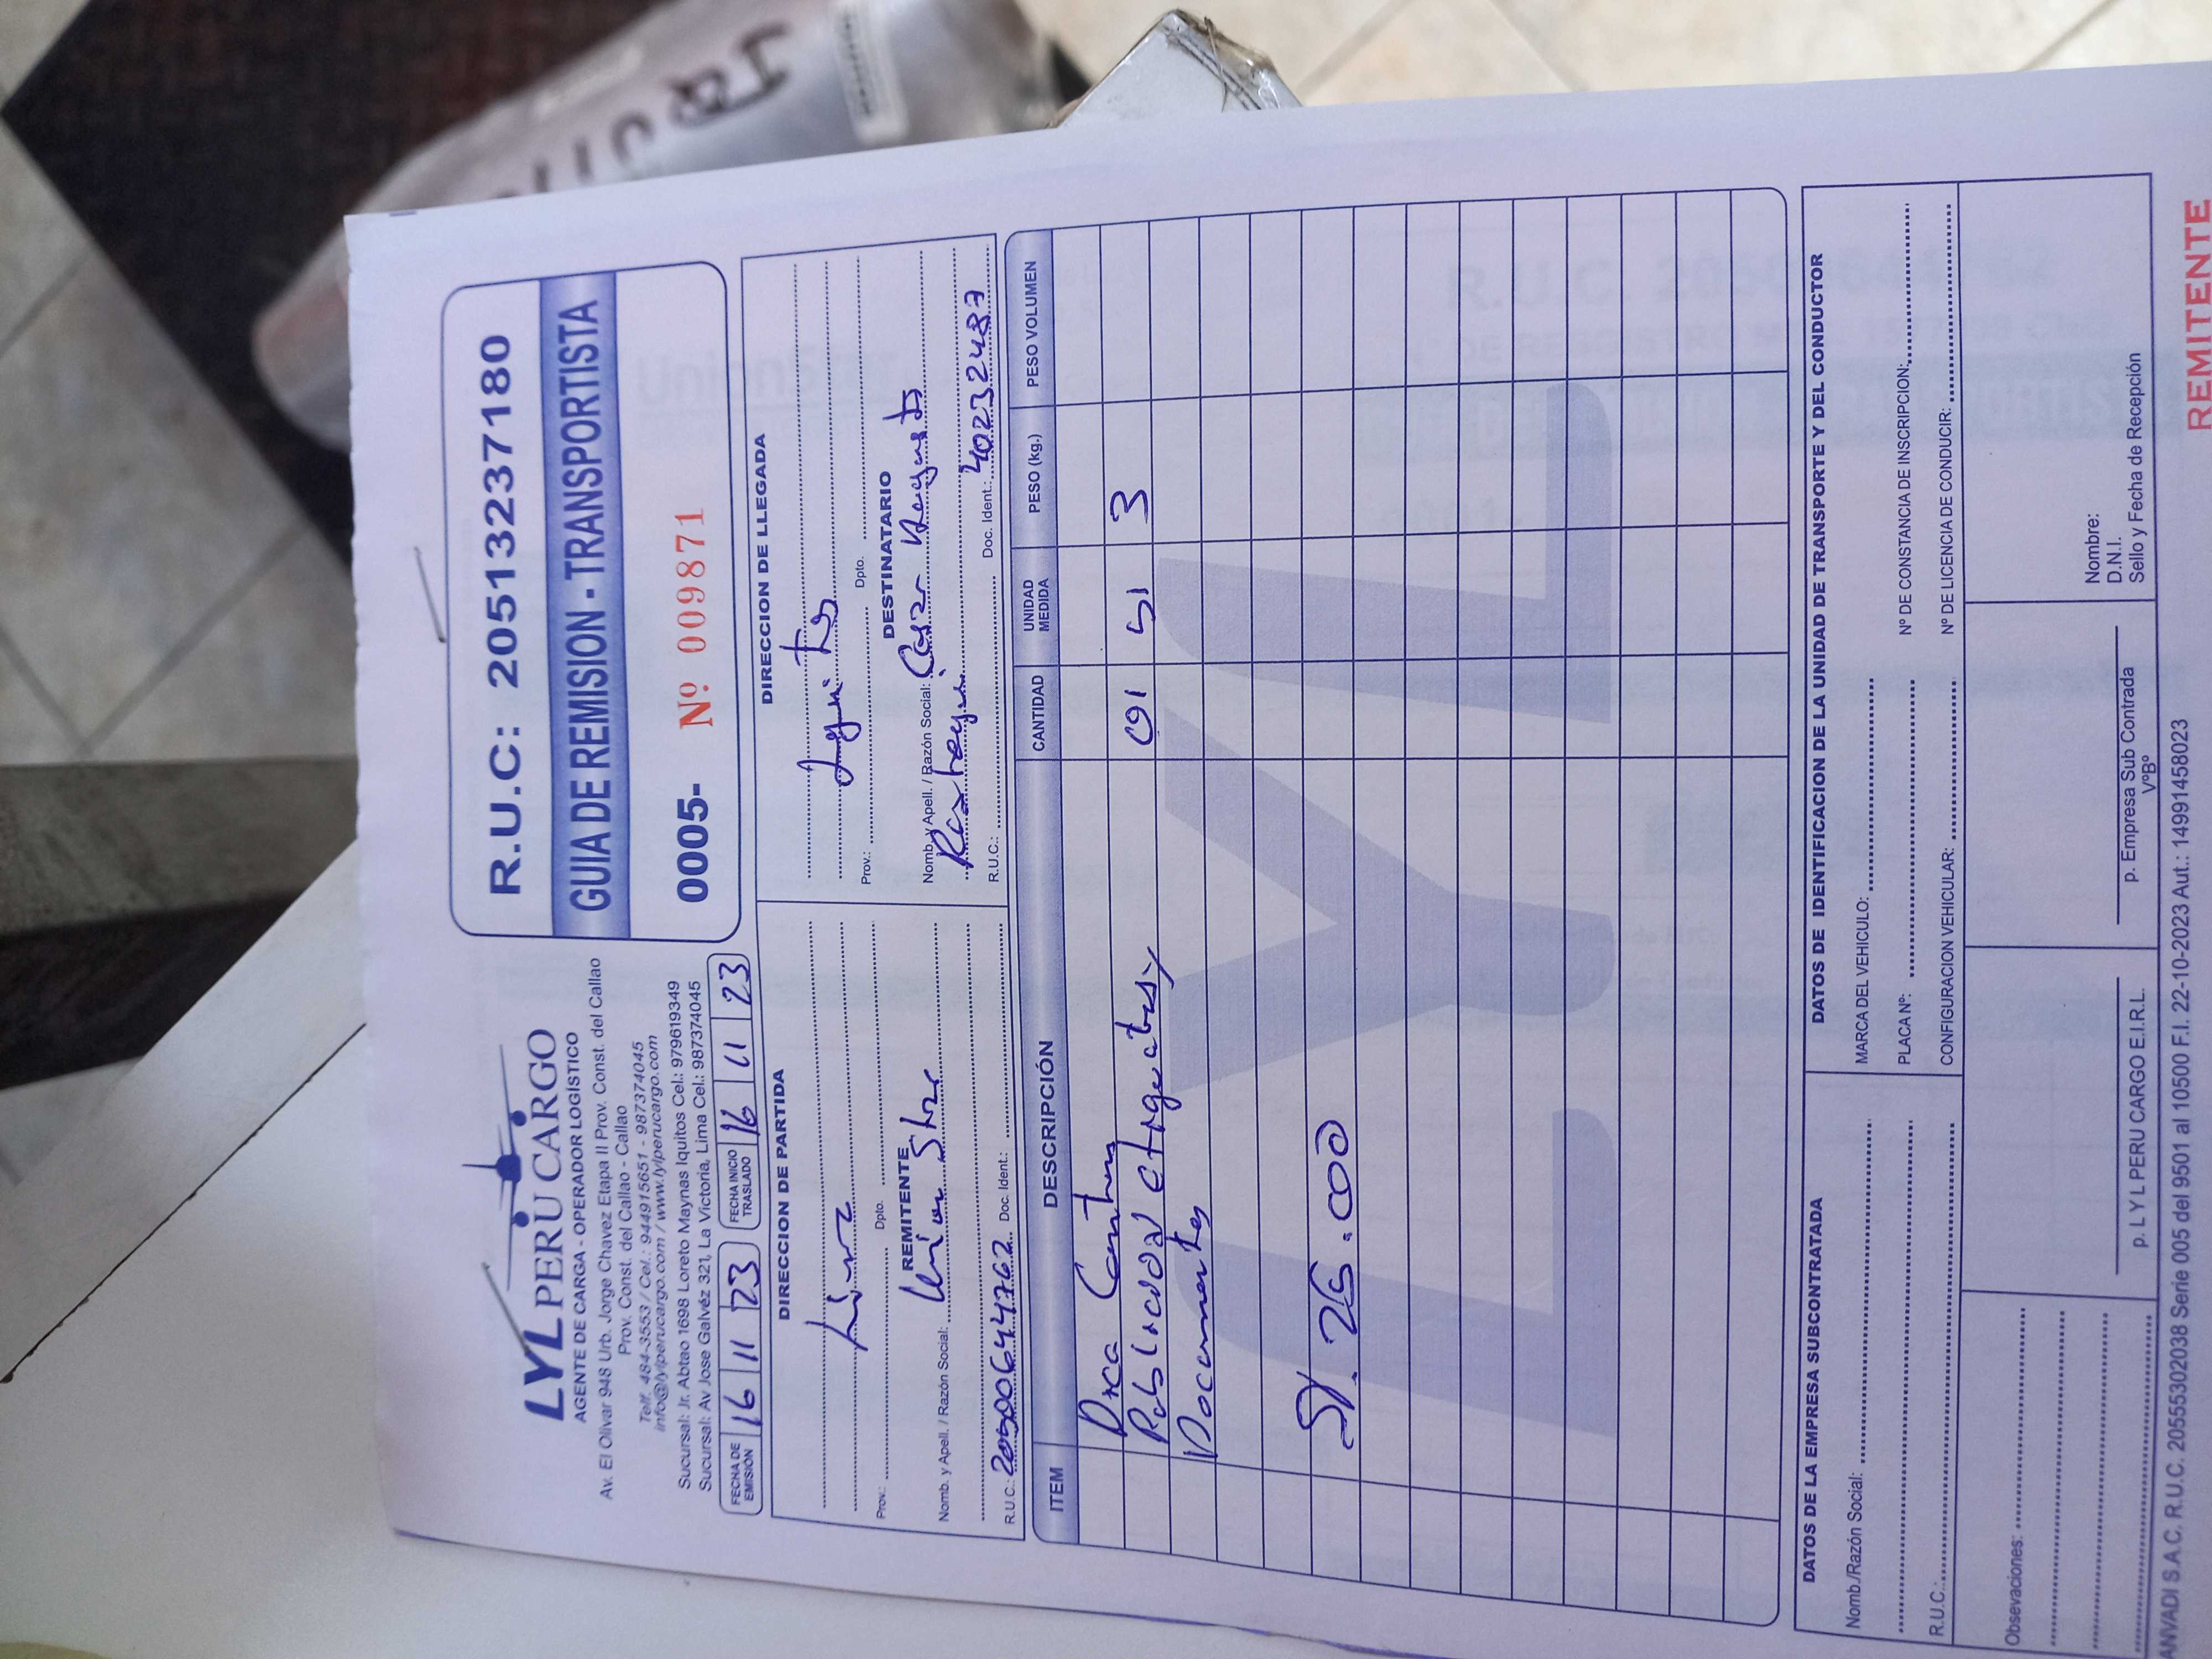 LYL PERU CARGO
AGENTE DE CARGA - OPERADOR LOGÍSTICO
Av. El Olivar 948 Urb. Jorge Chavez Etapa II Prov. Const. del Callao
Prov. Const. del Callao - Callao
Telf. 484-3553 / Cel.: 944915651 - 987374045
info@lylperucargo.com / www.lylperucargo.com
Sucursal: Jr. Abtao 1698 Loreto Maynas Iquitos Cel.: 979619349
Sucursal: Av Jose Galvéz 321, La Victoria, Lima Cel.: 987374045
R.U.C: 20513237180
GUIA DE REMISION - TRANSPORTISTA
0005- Nº 009871
FECHA DE EMISIÓN 16 11 23
FECHA INICIO TRASLADO 16 11 23
DIRECCION DE PARTIDA
Lima
Prov.: Dpto.
REMITENTE
Nomb. y Apell. / Razón Social: Union Star
R.U.C.: 20500644762 Doc. Ident.:
DIRECCION DE LLEGADA
Iquitos
Prov.: Dpto.
DESTINATARIO
Nomb. y Apell. / Razón Social: Cesar Augusto
R.U.C.: Doc. Ident.: 40232487
ITEM DESCRIPCIÓN CANTIDAD UNIDAD MEDIDA PESO (kg.) PESO VOLUMEN
01 3
Documentos
S/. 26.00
LYL
DATOS DE LA EMPRESA SUBCONTRATADA
Nomb./Razón Social:
R.U.C.:
DATOS DE IDENTIFICACION DE LA UNIDAD DE TRANSPORTE Y DEL CONDUCTOR
MARCA DEL VEHICULO:
PLACA Nº: Nº DE CONSTANCIA DE INSCRIPCION:
CONFIGURACION VEHICULAR: Nº DE LICENCIA DE CONDUCIR:
Obsevaciones:
p. L Y L PERU CARGO E.I.R.L.
p. Empresa Sub Contrada
VºBº
Nombre:
D.N.I.
Sello y Fecha de Recepción
ANVADI S.A.C. R.U.C. 20555302038 Serie 005 del 9501 al 10500 F.I. 22-10-2023 Aut.: 14991458023
REMITENTE